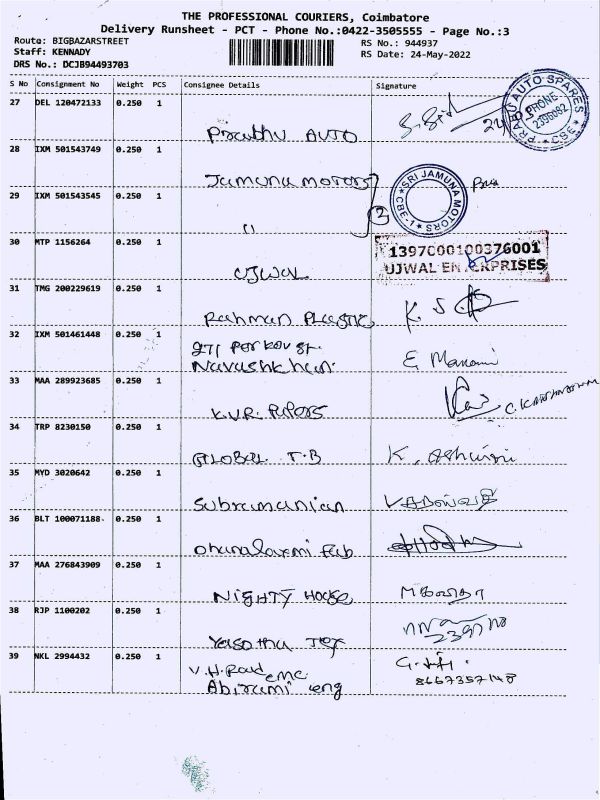 THE PROFESSIONAL COURIERS, Coimbatore
Delivery Runsheet - PCT - Phone No.:0422-3505555 - Page No.:3
Route: BIGBAZARSTREET
RS No.: 944937
Staff: KENNADY
RS Date: 24-May-2022
DRS No.: DCJB94493703
S No Consignment No Weight PCS Consignee Details Signature
27 DEL 120472133 0.250 1
Prabhu AUTO
PRABU AUTO SPARES CBE
PHONE 2396092
28 IXM 501543749 0.250 1
Jamuna motors
SRI JAMUNA MOTORS CBE-1
29 IXM 501543545 0.250 1
11
2
30 MTP 1156264 0.250 1
UJWAL
1397C00100376001
UJWAL ENTERPRISES
31 TMG 200229619 0.250 1
Rahman Plastic
K. S
32 IXM 501461448 0.250 1
271
Navashkhan
E. Manomi
33 MAA 289923685 0.250 1
K.V.R. Papers
34 TRP 8230150 0.250 1
GLOBAL T.B
K. Ashwini
35 MYD 3020642 0.250 1
Subramanian
36 BLT 100071188 0.250 1
Dhanalaxmi Fab
37 MAA 276843909 0.250 1
NIGHTY House
38 RJP 1100202 0.250 1
Yasotha Tex
39 NKL 2994432 0.250 1
V.H. Road
Abirami eng
8667357148